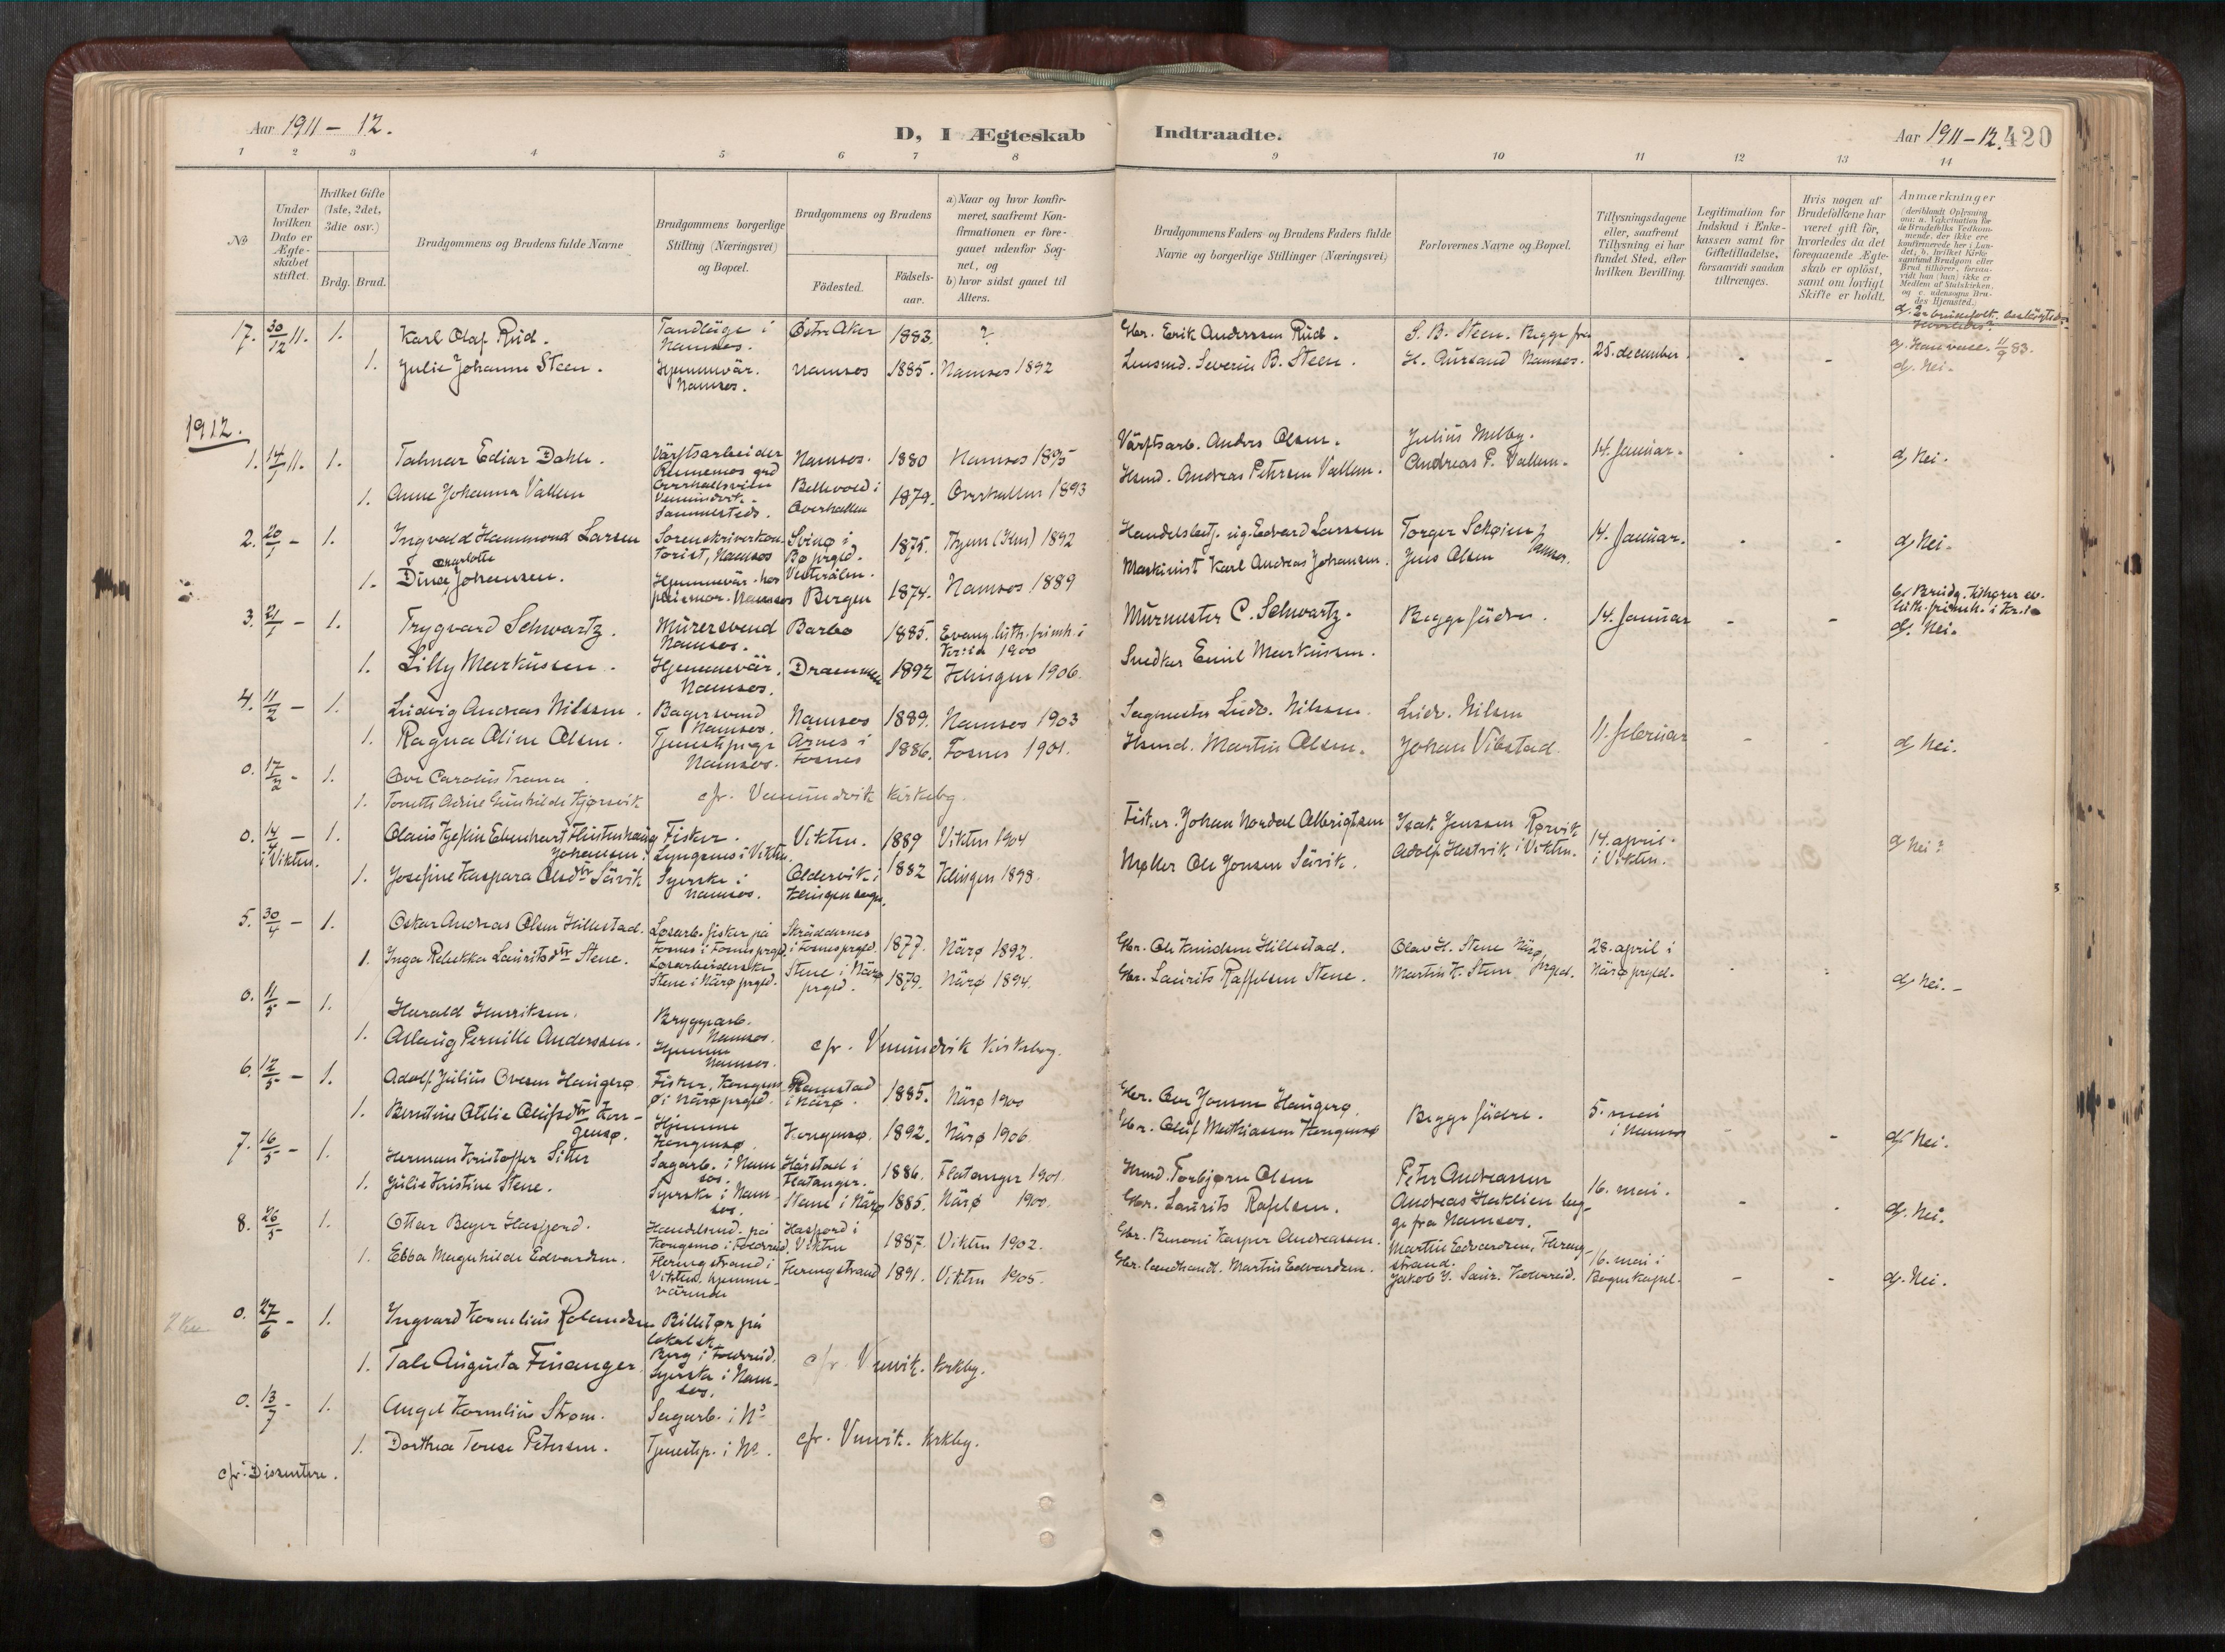 Aar 1911 - 12.
D, I Ægteskab Indtraadte.
Aar 1911 - 12. 420
1 2 3 4 5 6 7 8 9 10 11 12 13 14
№
Under hvilken Dato er Ægteskabet stiftet.
Hvilket Gifte (1ste, 2det, 3die osv.)
Brdg. Brud.
Brudgommens og Brudens fulde Navne
Brudgommens borgerlige Stilling (Næringsvei) og Bopæl.
Brudgommens og Brudens
Födested.
Födsels-aar.
a) Naar og hvor konfirmeret, saafremt Konfirmationen er foregaaet udenfor Sognet, og
b) hvor sidst gaaet til Alters.
Brudgommens Faders og Brudens Faders fulde Navne og borgerlige Stillinger (Næringsvei)
Forlovernes Navne og Bopæl.
Tillysningsdagene eller, saafremt Tillysning ei har fundet Sted, efter hvilken Bevilling.
Legitimation for Indskud i Enkekassen samt for Giftetilladelse, forsaavidt saadan tiltrænges.
Hvis nogen af Brudefolkene har været gift før, hvorledes da det foregaaende Ægteskab er oplöst, samt om lovligt Skifte er holdt.
Anmærkninger
17. 30/12 11. 1. Karl Olaf Rud. Tandläge i Namsos. Östre Aker 1883. ? Gbr. Erik Anderssen Rud. S. B. Steen. Begge fra
1. Julie Johanne Steen. Hjemmevär. Namsos. Namsos 1885. Namsos 1892 Lensmd. Severin B. Steen. H. Aursand Namsos. 25. december. - - d. Nei.
1912.
1. 14/1 11. 1. Talmar Ediar Dahle. Värftsarbeider Namsos. 1880 Namsos 1895 Värftsarb. Anders Olsen. Julius Melby. 14. Januar. - - d, Nei.
1. Anne Johanna Vallem Sammesteds. Bellevold i Overhallen 1879. Overhallen 1893 Hsmd. Andreas Petersen Vallem. Andreas P. Vallem.
2. 20/1 - 1. Ingvald Hammond Larsen Sorenskriverkontorist, Namsos Svinø i Bø prgld. Vesterålen. 1875. 1892 Edvard Larssen Torger Schøien 14. Januar. - - d, Nei.
1. Dina Charlotte Johansen. Namsos Bergen 1874. Namsos 1889 Maskinist Karl Andreas Johansen. Jens Olsen Namsos.
3. 21/1 - 1. Trygvard Schwartz. Murersvend Namsos. Barbo 1885. Evang. luth. frimh. i Kr:ia 1900 Murmester C. Schwartz. Begge fädre. 14. Januar - - d. Nei.
1. Lilly Markussen. Hjemmevär. Namsos. Drammen 1892 Klingen 1906. Snedker Emil Markussen.
4. 11/2 - 1. Ludvig Andreas Nilssen. Bagersvend Namsos. Namsos 1889. Namsos 1903 Sagmester Ludv. Nilssen. Ludv. Nilsen 11. februar - - d, Nei.
1. Ragna Oline Olsen. Tjenestepige Namsos. Årnes i Fosnes 1886. Fosnes 1901. Hsmd. Martin Olsen. Johan Vibstad
0. 17/2 - 1. Ove Carolius Trana.
1. Gunhilde Kjørsvik cfr. Vemundvik kirkebg.
0. 14/4 - i Vikten. 1. Johansen. Fisker. Vikten. 1889 Vikten 1904 Fisker. Johan Nordal Albrigtsen Isak Jenssen Rørvik 14. april. i Vikten. d, Nei?
1. Josefine Kaspara Olsdtr Särvik Syerske i Namsos. Aldersvik i Klingen sogn. 1882 Klingen 1898. Møller Ole Jonsen Särvik. Adolf Hestvik i Vikten.
5. 30/4 - 1. Oskar Andreas Olsen Hillestad. Løsarb. fisker på Fosnes i Fosnes prgld. 1877. Närø 1892. Gbr. Ole Knudsen Hillestad. Olav H. Stene Närø prgld. 28. april i Närø prgld. - - d, Nei. -
1. Inga Rebekka Lauritsdtr Stene. Løsarbeiderske Stene i Närø prgld. Stene i Närø prgld. 1879. Närø 1894. Gbr. Laurits Raffelsen Stene. Martin K. Stene
0. 11/5 - 1. Harald Henriksen. Bryggarb. Namsos.
1. Aslaug Pernille Anderssen. Hjemme Namsos. cfr. Vemundvik kirkebog.
6. 12/5 - 1. Adolf Julius Ovesen Haugerø. Fisker, Kongensø i Närø prgld. Ramstad i Närø. 1885. Närø 1900 Gbr. Ove Jonsen Haugerø. Begge fädre. 5. mai i Namsos - - d, Nei.
1. Berntine Otelie Olufsdtr Kongensø. Hjemme Kongensø. Kongensø. 1892. Närø 1906. Gbr. Oluf Mathiassen Kongensø
7. 16/5 - 1. Herman Kristoffer Sitter Sagarb. i Namsos. Hårstad i Flatanger. 1886. Flatanger 1901. Hsmd. Torbjørn Olsen Peter Andreassen 16. mai. - - d. Nei.
1. Julie Kristine Stene. Syerske i Namsos. Stene i Närø 1885. Närø 1900. Gbr. Laurits Rafelsen. Andreas Haklien begge fra Namsos.
8. 26/5 1. Ottar Beyer Hasfjord. Handelsmd. på Kongsmo i Foldereid. Hasfjord i Vikten 1887. Vikten 1902. Gbr. Benoni Kasper Andreassen. Martin Edvardsen, 16. mai i - - d. Nei.
1. Ebba Magnhilde Edvardsen. hjemmeværende 1891. Vikten 1905. Gbr. landhandl. Martin Edvardsen.
0. 27/6 - 1. Ingvard Kornelius Rolandsen Billettør på lokalsk. Berg i Foldereid.
1. Tale Augusta Finanger. Syerske i Namsos. cfr. Vemvik. kirkbg.
0. 13/7 - 1. Angel Kornelius Strøm. Sagarb. i Ns
1. Dorthea Terese Petersen. Tjenestep. i Ns. cfr. Vemvik. kirkbg.
cfr. Dissentere.